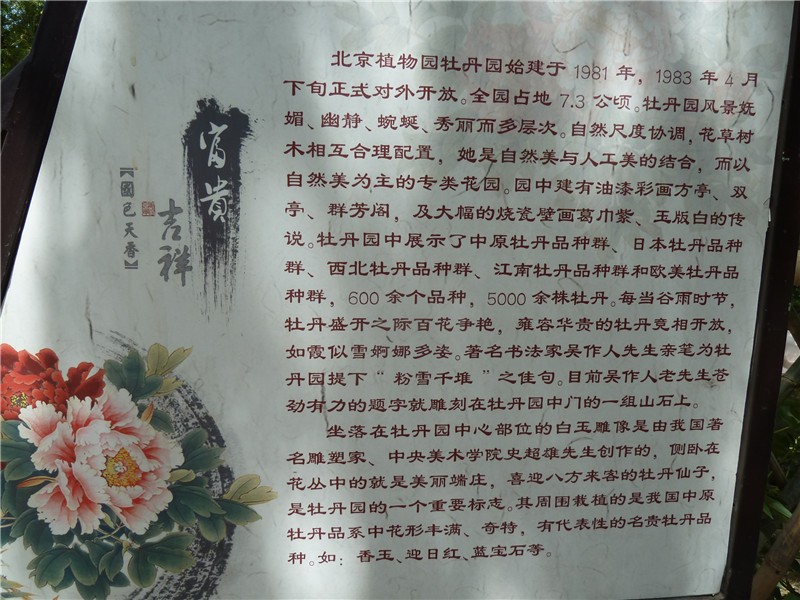 北京植物园牡丹园始建于 1981 年，1983 年 4 月
下旬正式对外开放。全园占地 7.3 公顷。牡丹园风景妩
媚、幽静、蜿蜒、秀丽而多层次。自然尺度协调，花草树
木相互合理配置，她是自然美与人工美的结合，而以
自然美为主的专类花园。园中建有油漆彩画方亭、双
亭、群芳阁，及大幅的烧瓷壁画葛巾紫、玉版白的传
说。牡丹园中展示了中原牡丹品种群、日本牡丹品种
群、西北牡丹品种群、江南牡丹品种群和欧美牡丹品
种群，600 余个品种，5000 余株牡丹。每当谷雨时节，
牡丹盛开之际百花争艳，雍容华贵的牡丹竞相开放，
如霞似雪婀娜多姿。著名书法家吴作人先生亲笔为牡
丹园提下“ 粉雪千堆 ”之佳句。目前吴作人老先生苍
劲有力的题字就雕刻在牡丹园中门的一组山石上。
坐落在牡丹园中心部位的白玉雕像是由我国著
名雕塑家、中央美术学院史超雄先生创作的，侧卧在
花丛中的就是美丽端庄，喜迎八方来客的牡丹仙子，
是牡丹园的一个重要标志。其周围栽植的是我国中原
牡丹品系中花形丰满、奇特，有代表性的名贵牡丹品
种。如：香玉、迎日红、蓝宝石等。
富贵
吉祥
【國色天香】